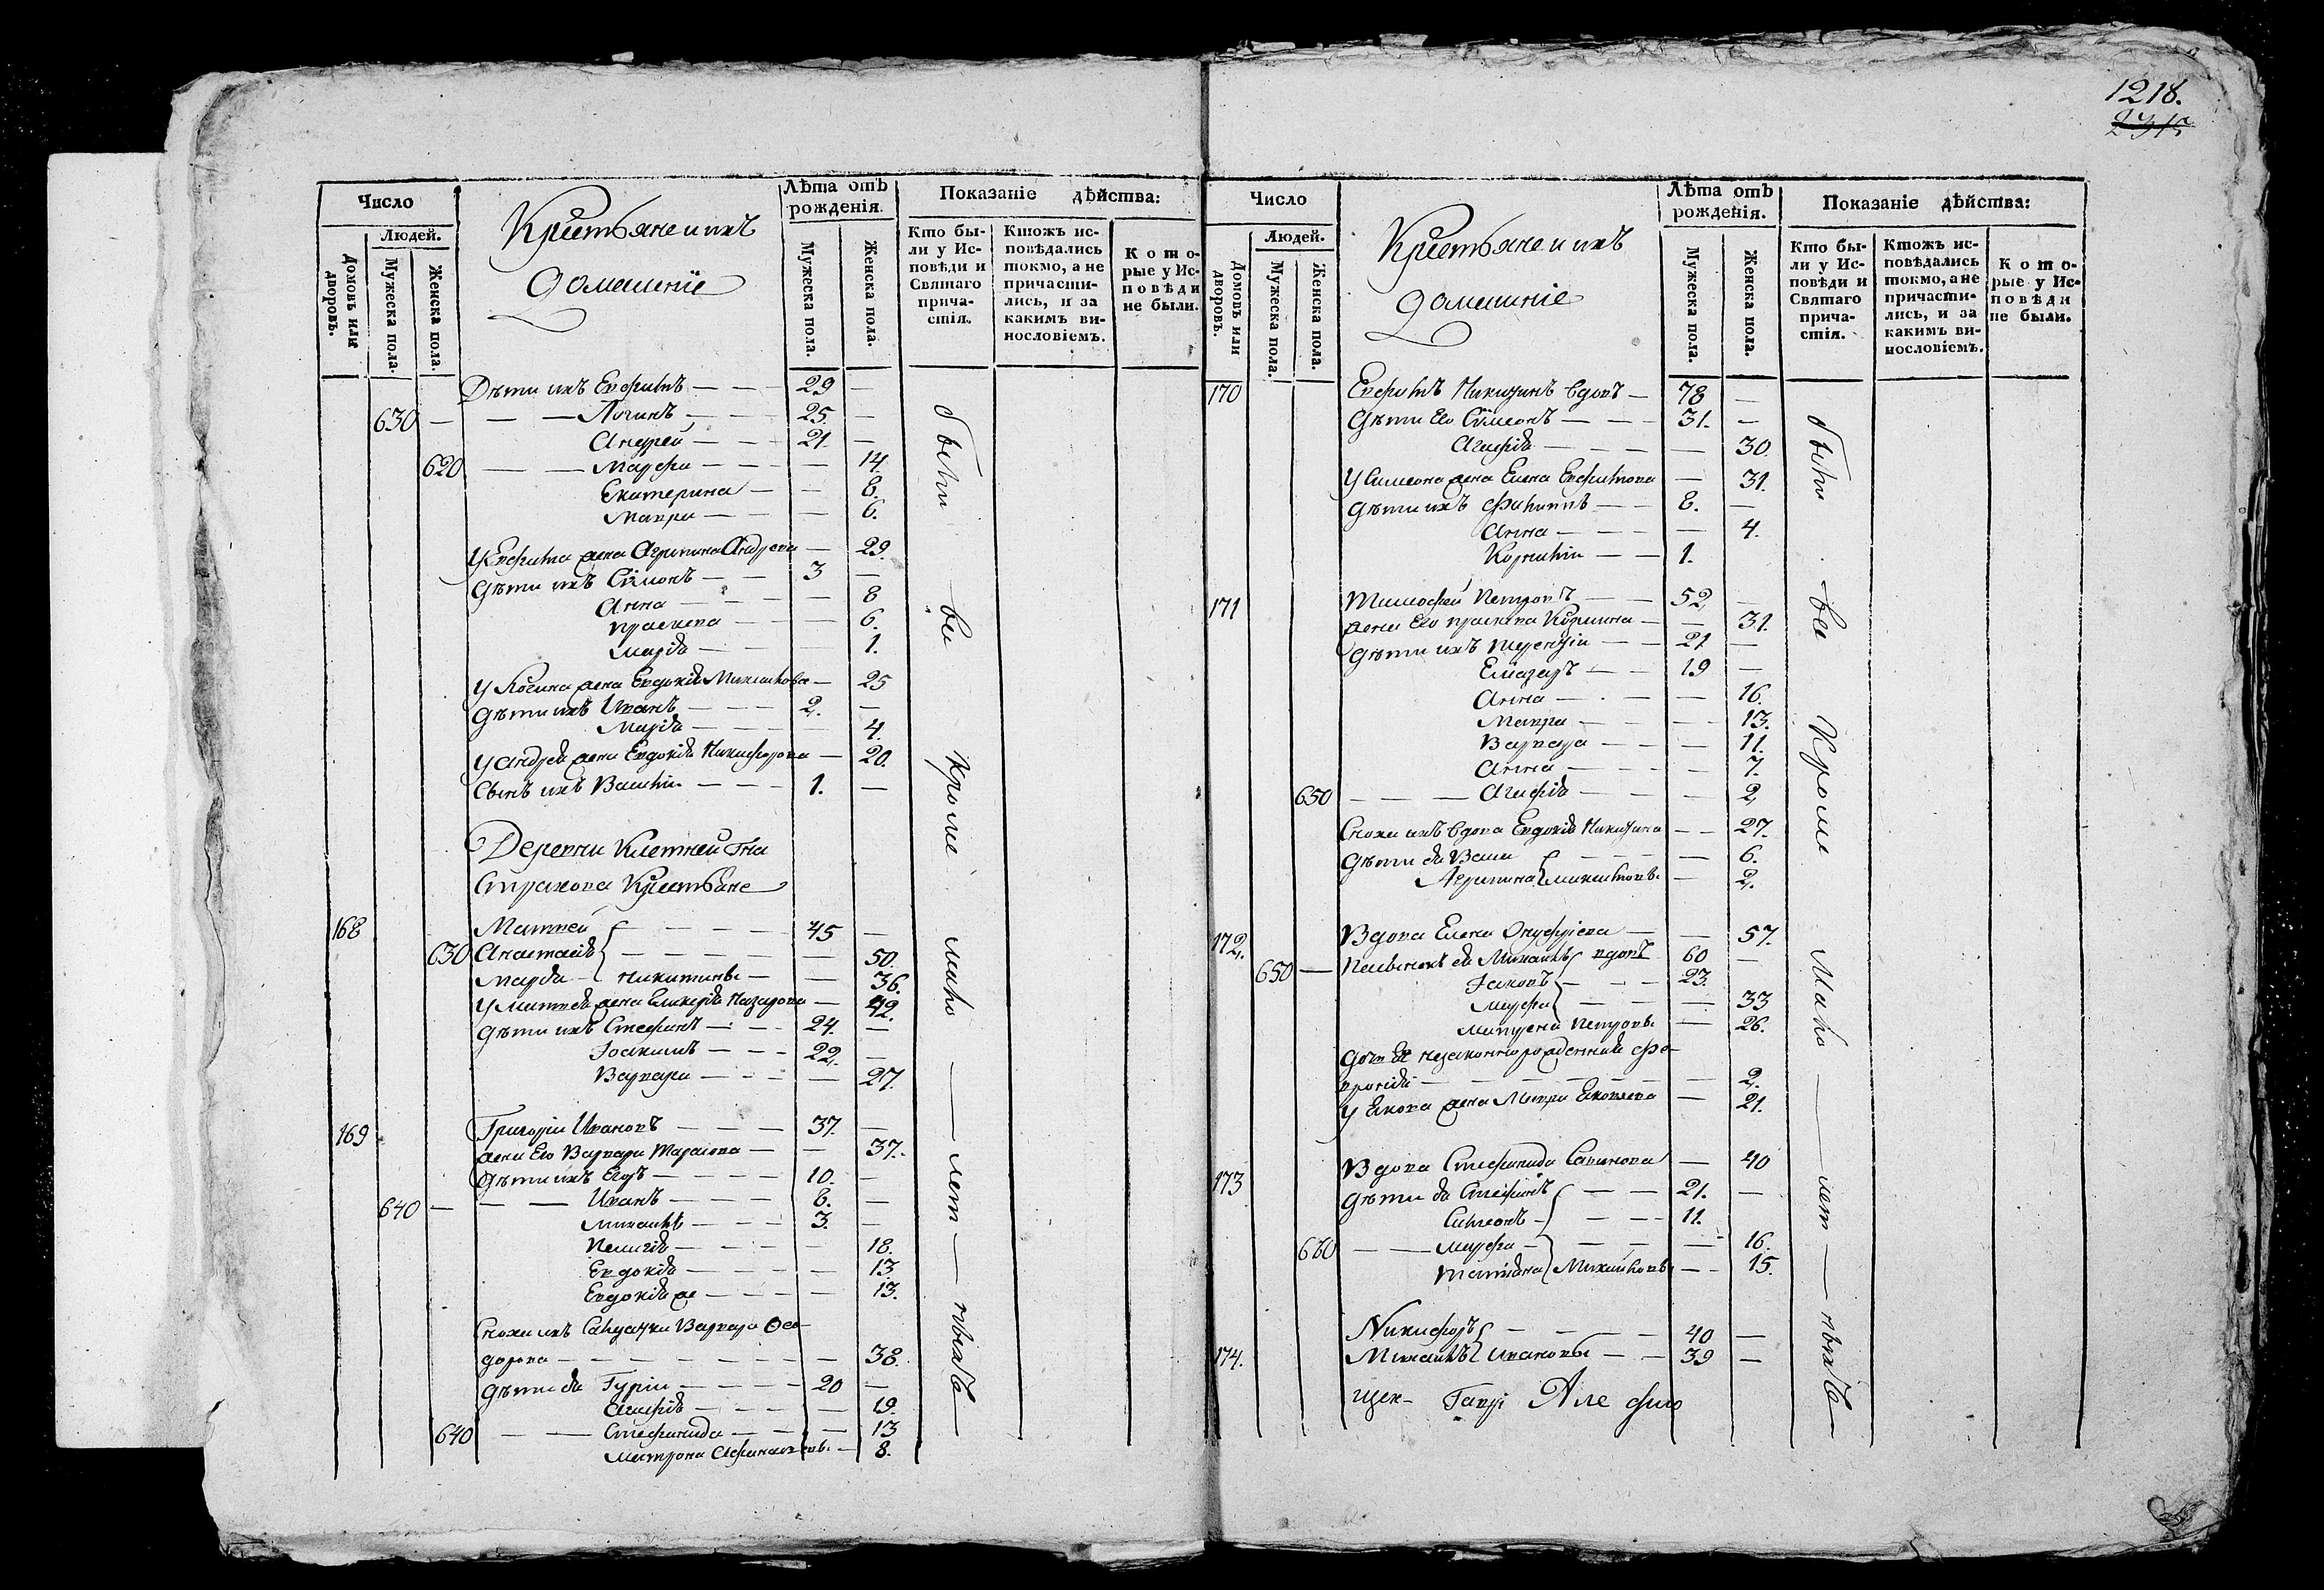 1218.
2315
Число
Людей.
Домовъ или дворовъ.
Мужеска пола.
Женска пола.
Крестьяне и ихъ
домашніе
Лѣта отъ
рожденія.
Мужеска пола.
Женска пола.
Показаніе дѣйства:
Кто бы-
ли у Ис-
повѣди и
Святаго
прича-
стія.
Ктожъ ис-
повѣдались
токмо, а не
причасти-
лись, и за
какимъ ви-
нословіемъ.
Кото-
рые у Ис-
повѣди
не были.
Дѣти ихъ Евфимъ — 29 —
630 — Логинъ — 25. —
Андрей — 21. —
620 — Марфа — 14.
Екатерина — 8.
Мавра — 6.
У Евфима жена Агрипина Андреева — 29.
Дѣти ихъ Симонъ — 3 —
Анна — 8
Праскева — 6.
Марія — 1.
У Логина жена Евдокія Михайлова — 25
Дѣти ихъ Иванъ — 2. —
Марія — 4.
У Андрея жена Евдокія Никифорова — 20.
Сынъ ихъ Василій — 1. —
Деревни Клетней Гна
Страхова Крестьяне
168 Матвей — 45 —
630 Анастасія — 50.
Марья — Никитины — 36.
У Матвея жена Гликерія Назарова — 42.
Дѣти ихъ Стефанъ — 24. —
Іоакимъ — 22. —
Варвара — 27.
169 Григорій Ивановъ — 37. —
жена Его Варвара Тарасова — 37.
Дѣти ихъ Егоръ — 10. —
640 — Иванъ — 6. —
Михаилъ — 3. —
Пелагія — 18.
Евдокія — 13
Евдокія же — 13.
Сноха ихъ Солдатка Варвара Ѳео-
дорова — 38.
Дѣти ея Гурій — 20 —
Агафія — 19.
640 — Стефанида — 13
Матрона Афанасьевы — 8.
были — вси кроме мало — лет — ныхъ —
Число
Людей.
Домовъ или дворовъ.
Мужеска пола.
Женска пола.
Крестьяне и ихъ
домашніе
Лѣта отъ
рожденія.
Мужеска пола.
Женска пола.
Показаніе дѣйства:
Кто бы-
ли у Ис-
повѣди и
Святаго
прича-
стія.
Ктожъ ис-
повѣдались
токмо, а не
причасти-
лись, и за
какимъ ви-
нословіемъ.
Кото-
рые у Ис-
повѣди
не были.
170 Евфимъ Никитинъ вдовъ — 78 —
Дѣти Его Симеонъ — 31. —
Агафія — 30.
У Симеона жена Елена Евфимова — 31.
Дѣти ихъ Филиппъ — 8. —
Анна — 4.
Корнилій — 1.
171 Тимофей Петровъ — 52 —
жена Его Праскева Козмина — 31.
Дѣти ихъ Терентій — 21 —
Елизаръ — 19 —
Анна — 16.
Мавра — 13.
Варвара — 11.
Анна — 7.
650 — Агафія — 2
Сноха ихъ вдова Евдокія Никитина — 27.
Дѣти ея Васса — 6.
Агрипина Михайловы — 2.
172 Вдова Елена Онуфріева — 57.
650 — Пасынокъ ея Михаилъ вдовъ 60 —
Іаковъ — 23.
Марфа — 33
Матрена Петровы — 26.
Дочь Ее незаконнорожденная Фе-
вронія — 2.
У Якова жена Мавра Яковлева — 21.
173 Вдова Стефанида Савинова — 40
Дѣти ея Стефанъ — 21. —
Симеонъ — 11.
660 — Марфа — 16.
Татіана Михайловы — 15.
174. Никифоръ — 40 —
Михаилъ Ивановы — 39 —
щен-
были — вси Кроме Мало — лет — ныхъ —